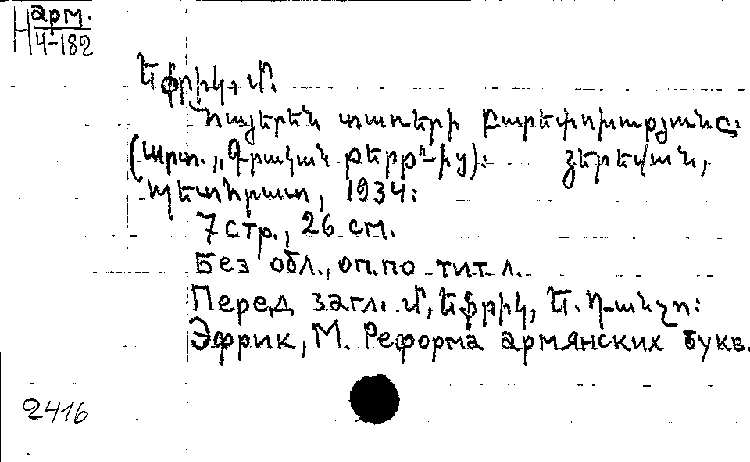 Н арм.
4-182
Եֆրիկ, Մ.
Հայերեն տառերի բարեփոխությունը։
(Արտ. „Գրական թերթ"-ից)։ Յերեվան,
Պետհրատ, 1934։
7 стр., 26 см.
Без обл., оп. по тит. л.
Перед загл. Մ, Եֆրիկ, Ե.
Эфрик, М. Реформа армянских букв.
2416